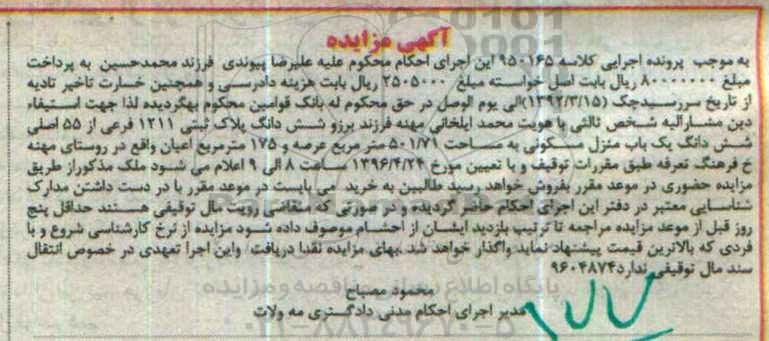 آگهی مزایده
به موجب پرونده اجرایی کلاسه ۹۵۰۱۶۵ این اجرای احکام محکوم علیه علیرضا پیوندی فرزند محمدحسین به پرداخت
مبلغ ۸۰۰۰۰۰۰۰ ریال بابت اصل خواسته مبلغ ۲۵۰۵۰۰۰ ریال بابت هزینه دادرسی و همچنین خسارت تاخیر تادیه
از تاریخ سررسیدچک (۱۳۹۲/۳/۱۵)الی یوم الوصل در حق محکوم له بانک قوامین محکوم بهگردیده لذا جهت استیفاء
دین مشارالیه شخص ثالثی با هویت محمد ایلخانی مهنه فرزند برزو شش دانگ پلاک ثبتی ۱۲۱۱ فرعی از ۵۵ اصلی
شش دانگ یک باب منزل مسکونی به مساحت ۵۰۱/۷۱ متر مربع عرصه و ۱۷۵ مترمربع اعیان واقع در روستای مهنه
خ فرهنگ تعرفه طبق مقررات توقیف و با تعیین مورخ ۱۳۹۶/۴/۲۴ ساعت ۸ الی ۹ اعلام می شود ملک مذکوراز طریق
مزایده حضوری در موعد مقرر بفروش خواهد رسید طالبین به خرید می بایست در موعد مقرر با در دست داشتن مدارک
شناسایی معتبر در دفتر این اجرای احکام حاضر گردیده و در صورتی که متقاضی رویت مال توقیفی هستند حداقل پنج
روز قبل از موعد مزایده مراجعه تا ترتیب بازدید ایشان از احشام موصوف داده شود مزایده از نرخ کارشناسی شروع و با
فردی که بالاترین قیمت پیشنهاد نماید واگذار خواهد شد .بهای مزایده نقدا دریافت/ واین اجرا تعهدی در خصوص انتقال
سند مال توقیفی ندارد۹۶۰۴۸۷۴
پایگاه اطلاع رسانی مناقصه و مزایده
محمود مصباح
مدیر اجرای احکام مدنی دادگستری مه ولات
۰۲۱-۸۸۳۴۹۶۷۰-۵
۱۷۷